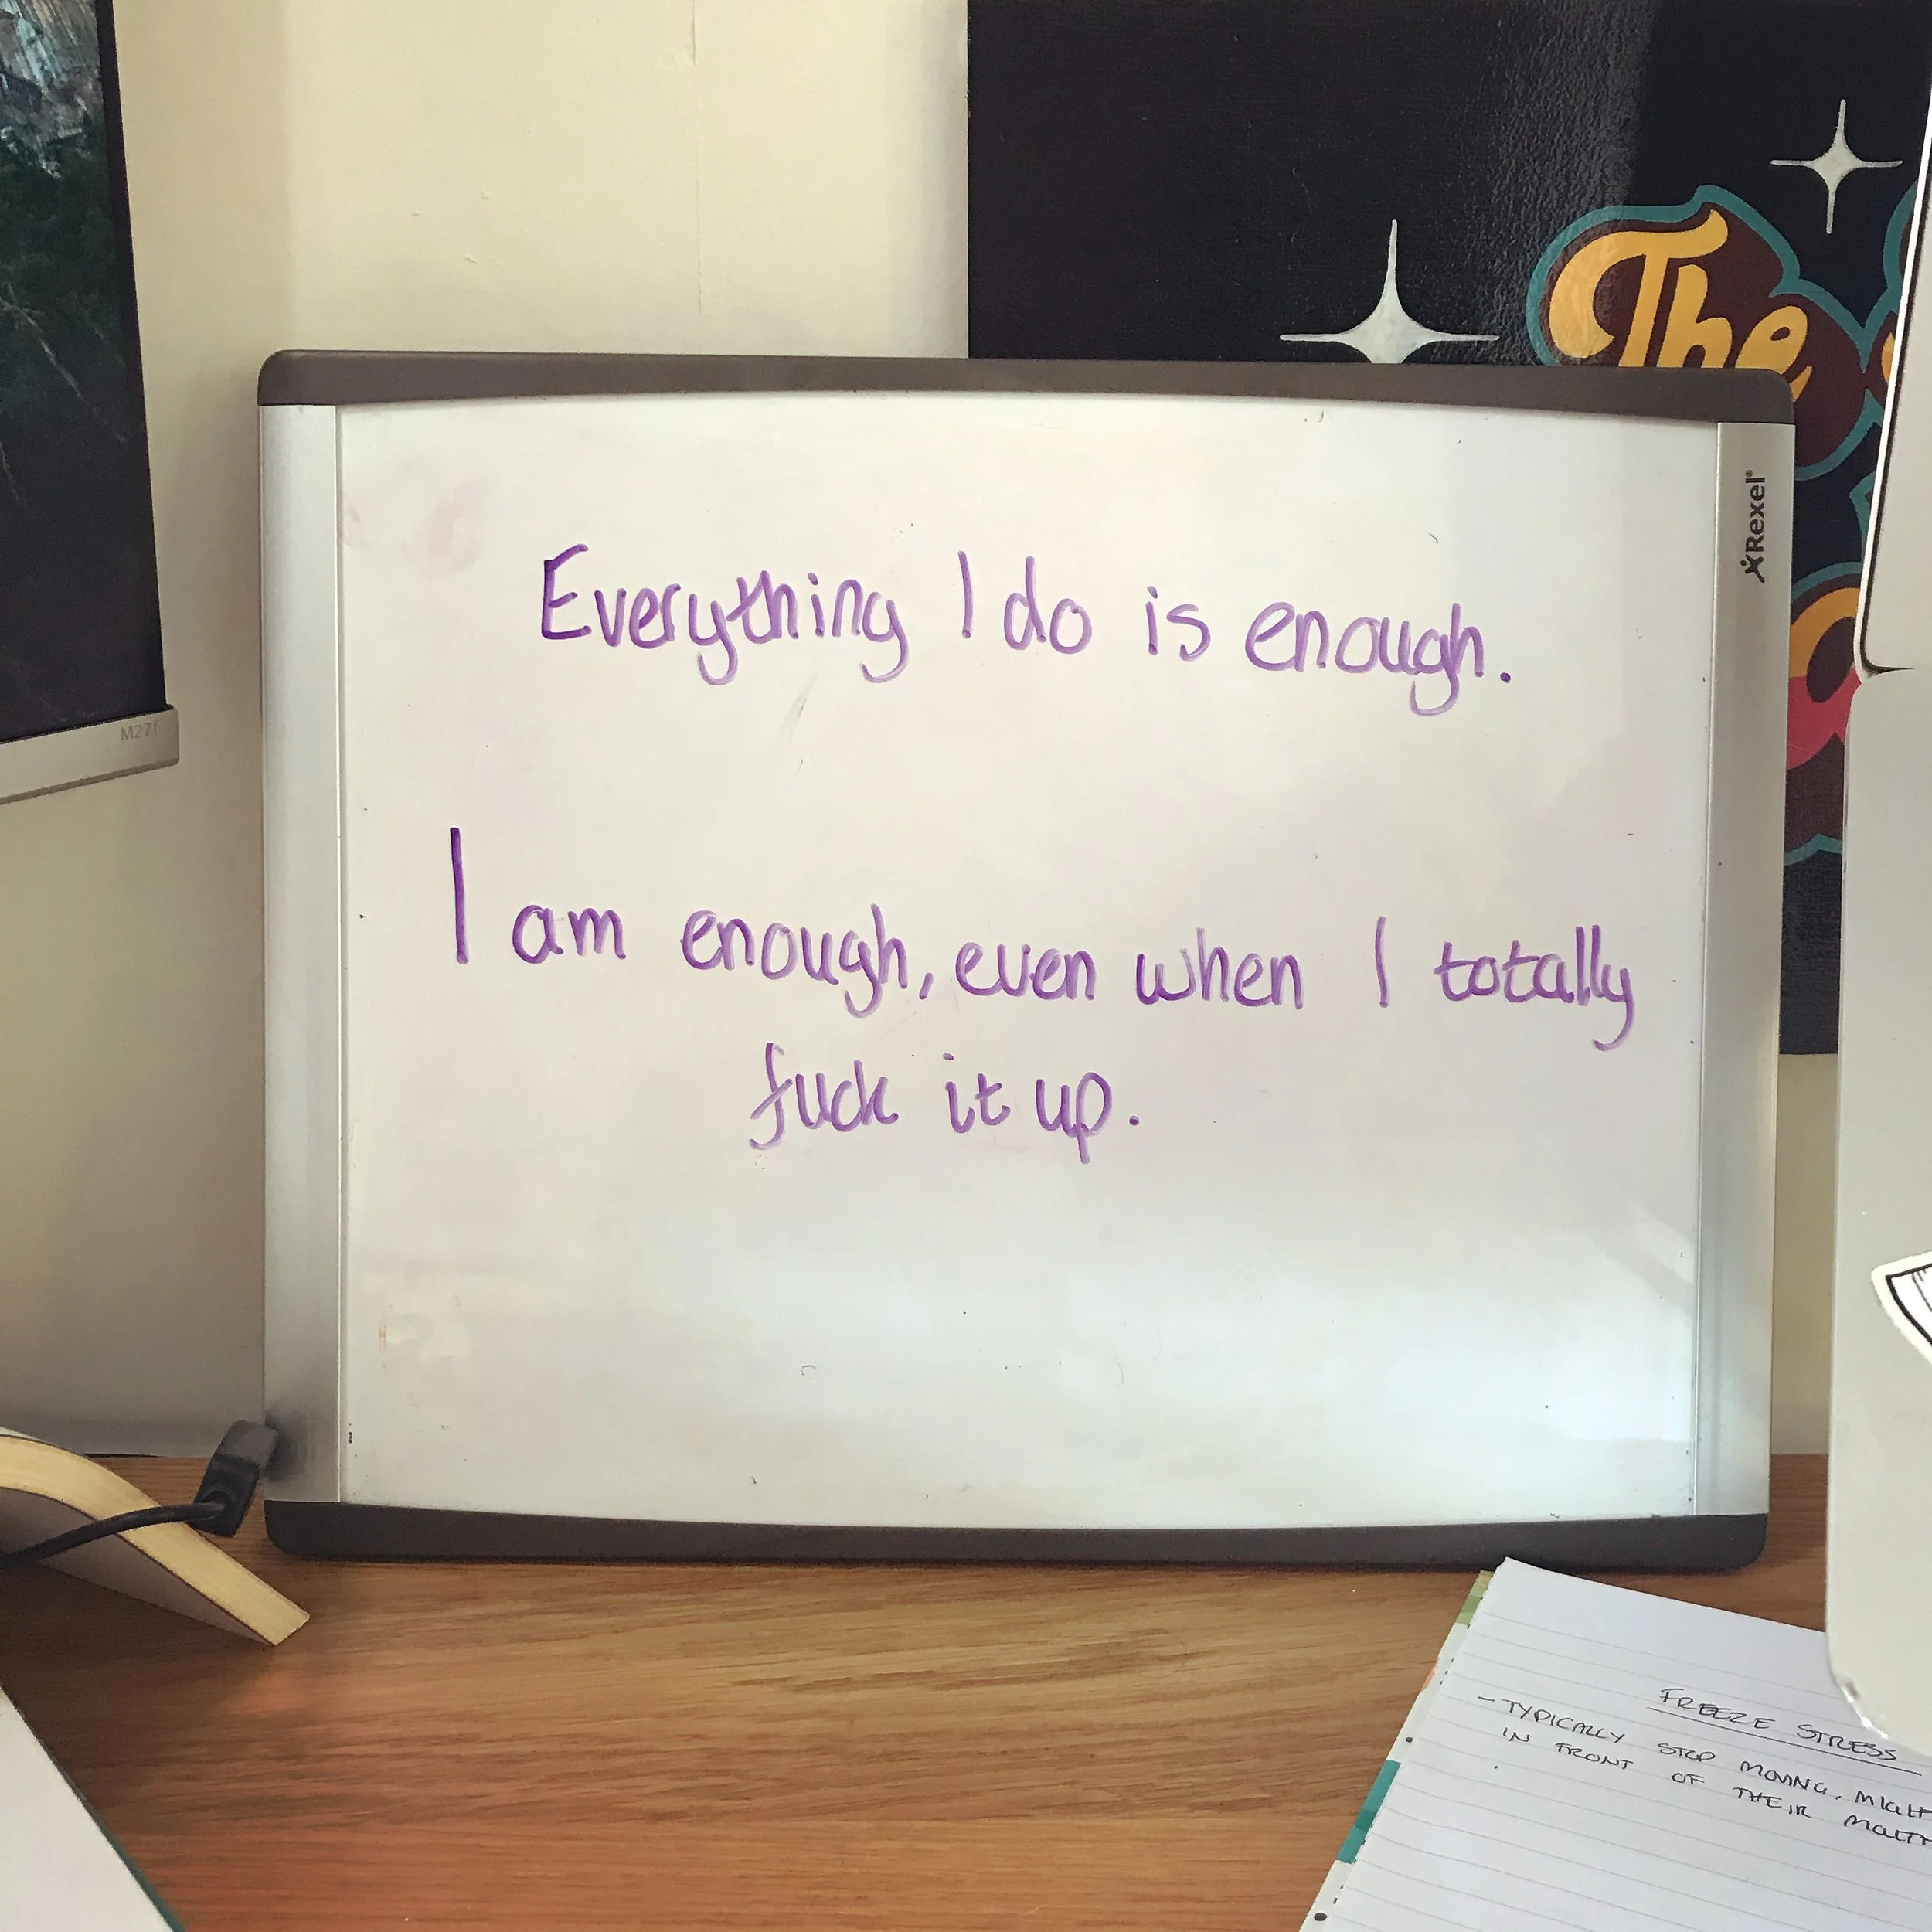 The
Rexel®
Everything I do is enough.
M27f
I am enough, even when I totally
fuck it up.
FREEZE STRESS
- TYPICALLY STOP MOVING,
IN FRONT OF THEIR